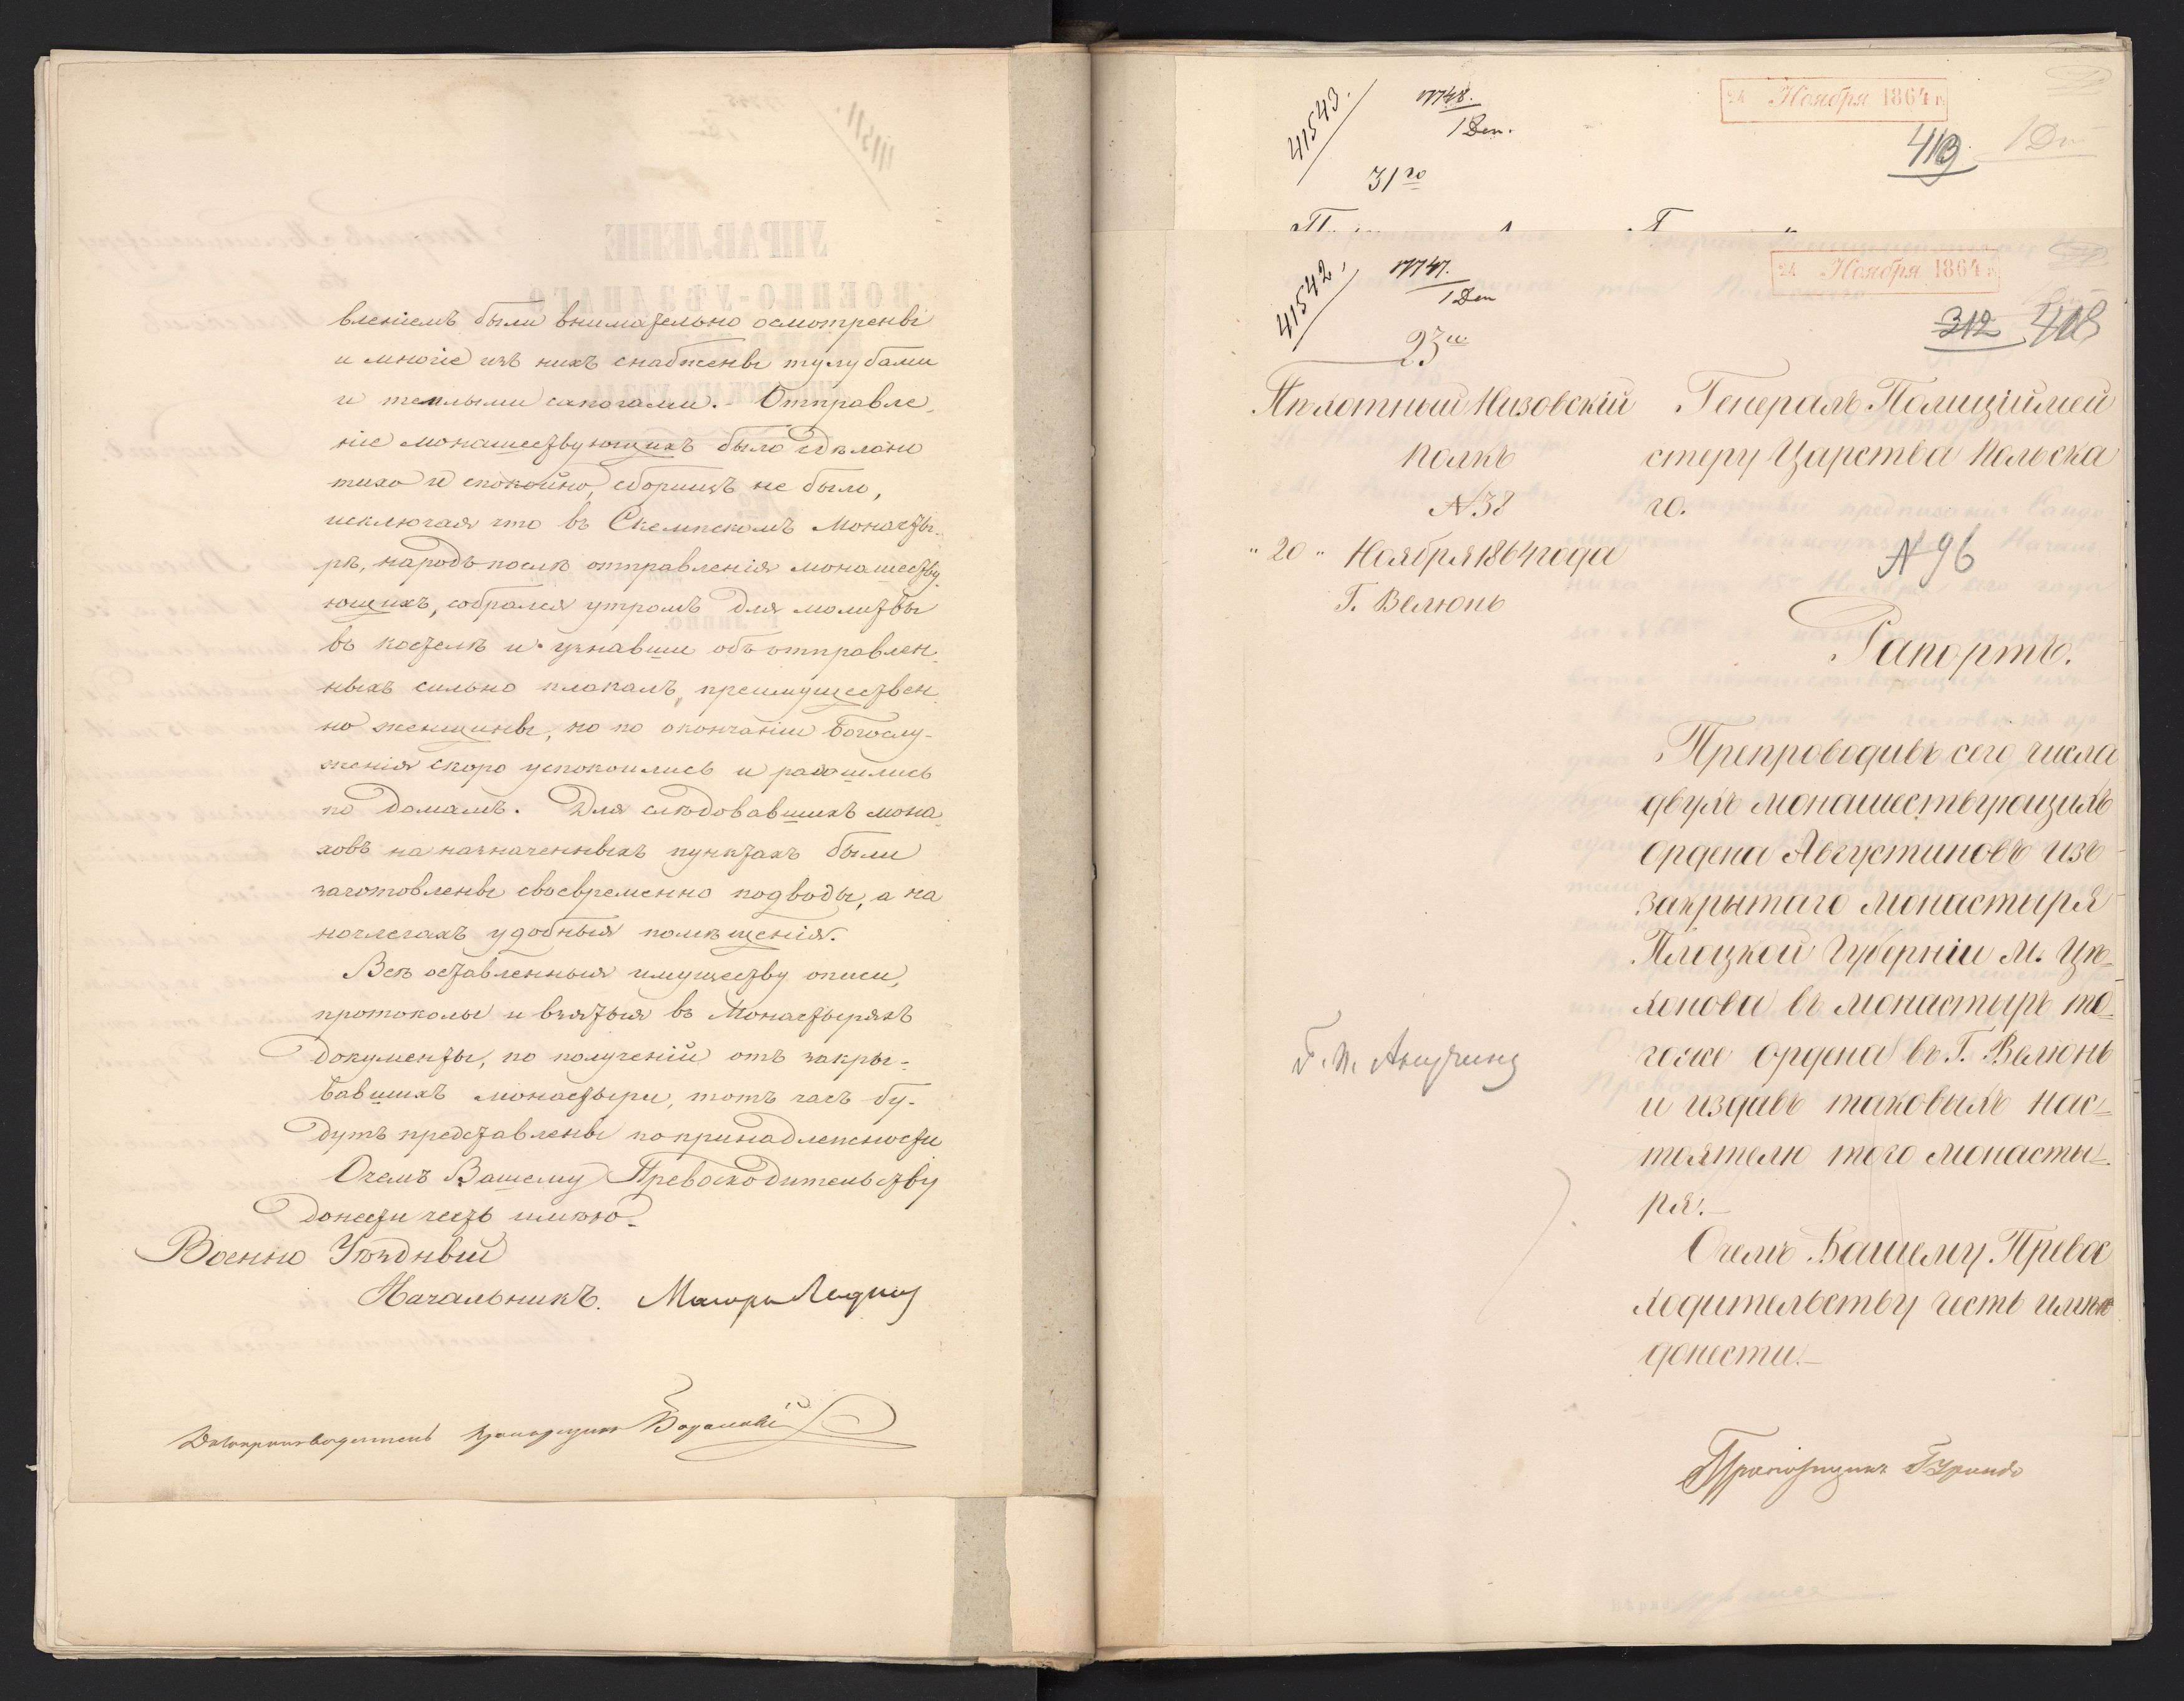 вленіемъ были внимательно осмотрены
и многіе изъ нихъ снабжены тулубами
и теплыми сапогами. - Отправле-
ніе монашествующихъ было сдѣлано
тихо и спокойно, сборищъ не было,
исключая что въ Скемпскомъ Монасты-
рѣ, народъ послѣ отправленія монашеству-
ющихъ, собрался утромъ для молитвы
въ костелѣ и узнавши объ отправлен-
ныхъ сильно плакалъ, преимуществен-
но женщины, но по окончаніи Богослу-
женія скоро успокоились и разошлись
по домамъ. Для слѣдовавшихъ мона-
ховъ на назначенныхъ пунктахъ были
заготовлены своевременно подводы, а на
ночлегахъ удобныя помѣщенія.
Всѣ оставленныя имуществу описи,
протоколы и взятыя въ Монастыряхъ
документы, по полученіи отъ закры-
вавшихъ монастыри, тотъ часъ бу-
дутъ представлены по принадлежности
Очемъ Вашему Превосходительству
донести честь имѣю.
Военно Уѣздный
Начальникъ. Маіоръ
Дѣлопроизводитель Прапорщикъ
41543.
17748.
1 Деп.
31го
24 Ноября 1864 г.
413
41542.
17747.
1 Деп
23го
24 Ноября 1864 г.
312 408
Пѣхотный Низовскій
полкъ
№ 38
"20" Ноября 1864 года
Г. Велюнь
Генералъ Полиціймей
стеру Царства Польска
го.
№ 96
Рапортъ.
Препроводивъ сего числа
двухъ монашествующихъ
Ордена Августиновъ изъ
закрытаго Монастыря
Плоцкой Губерніи М. Цѣ-
ханова въ монастырь то-
гоже ордена въ Г. Велюнь
и издавъ таковыхъ нас-
тоятелю того монасты-
ря.-
Очемъ Вашему Превос
ходительству честь имѣю
донести.-
Прапорщикъ